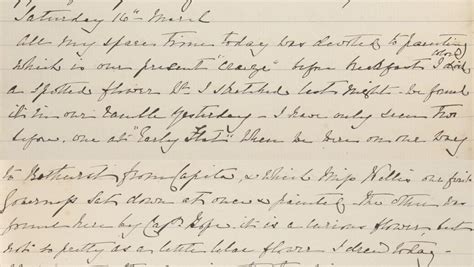 Saturday 16th March
All my spare time today was devoted to painting
which is our present "Craze" before breakfast I did
a spotted flower I sketched last night - We found
it in our ramble yesterday - I have only seen two
before. one at "Early Flat" when we were on our way
to Bathurst from Capita, & which Miss Willis our first
Governess sat down at once & painted. The other was
found here by Capt Hope. it is a curious flower, but
not so pretty as a little blue flower I drew today -